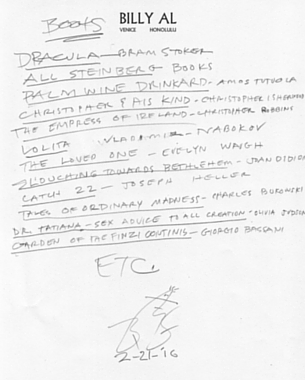 BOOKS
BILLY AL
VENICE HONOLULU
DRACULA - BRAM STOKER
ALL STEINBERG BOOKS
PALM WINE DRINKARD - AMOS TUTUOLA
CHRISTOPHER & HIS KIND - CHRISTOPHER ISHERWOOD
THE EMPRESS OF IRELAND - CHRISTOPHER ROBBINS
LOLITA VLADAMIR - NABOKOV
THE LOVED ONE - EVELYN WAUGH
SLOUCHING TOWARDS BETHLEHEM - JOAN DIDION
CATCH 22 - JOSEPH HELLER
TALES OF ORDINARY MADNESS - CHARLES BUKOWSKI
DR. TATIANA - SEX ADVICE TO ALL CREATION - OLIVIA JUDSON
GARDEN OF THE FINZI CONTINIS - GIORGIO BASSANI
ETC.
2-21-16